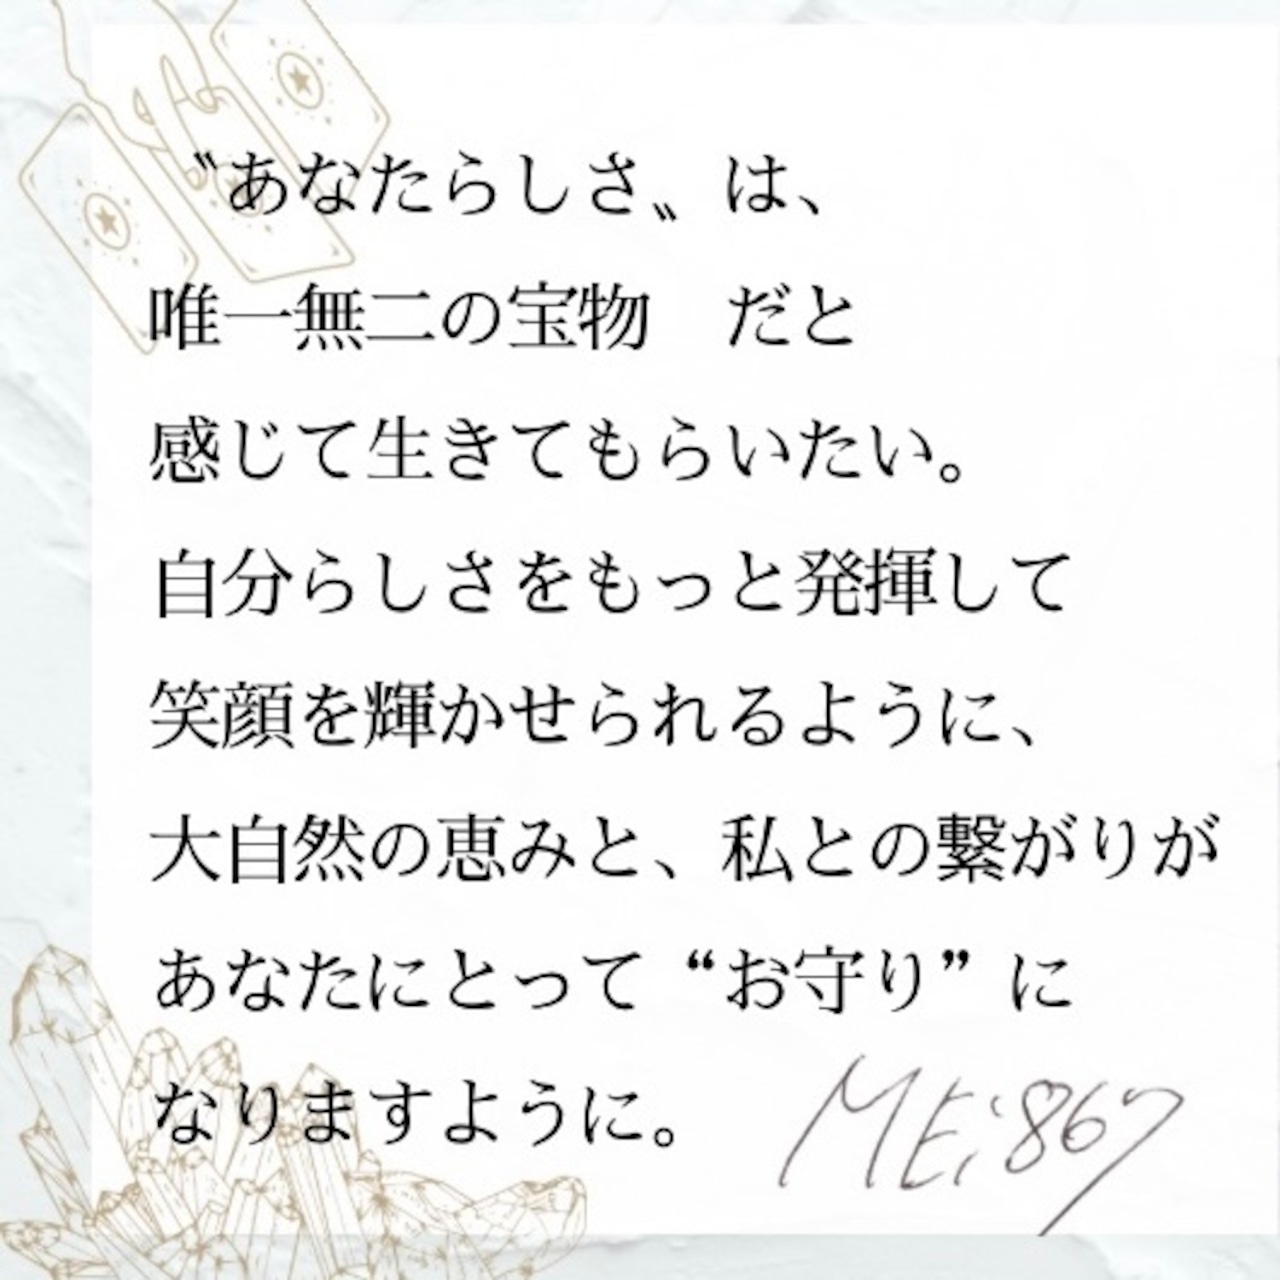 〝あなたらしさ〟は、
唯一無二の宝物　だと
感じて生きてもらいたい。
自分らしさをもっと発揮して
笑顔を輝かせられるように、
大自然の恵みと、私との繋がりが
あなたにとって“お守り”に
なりますように。
MEi867